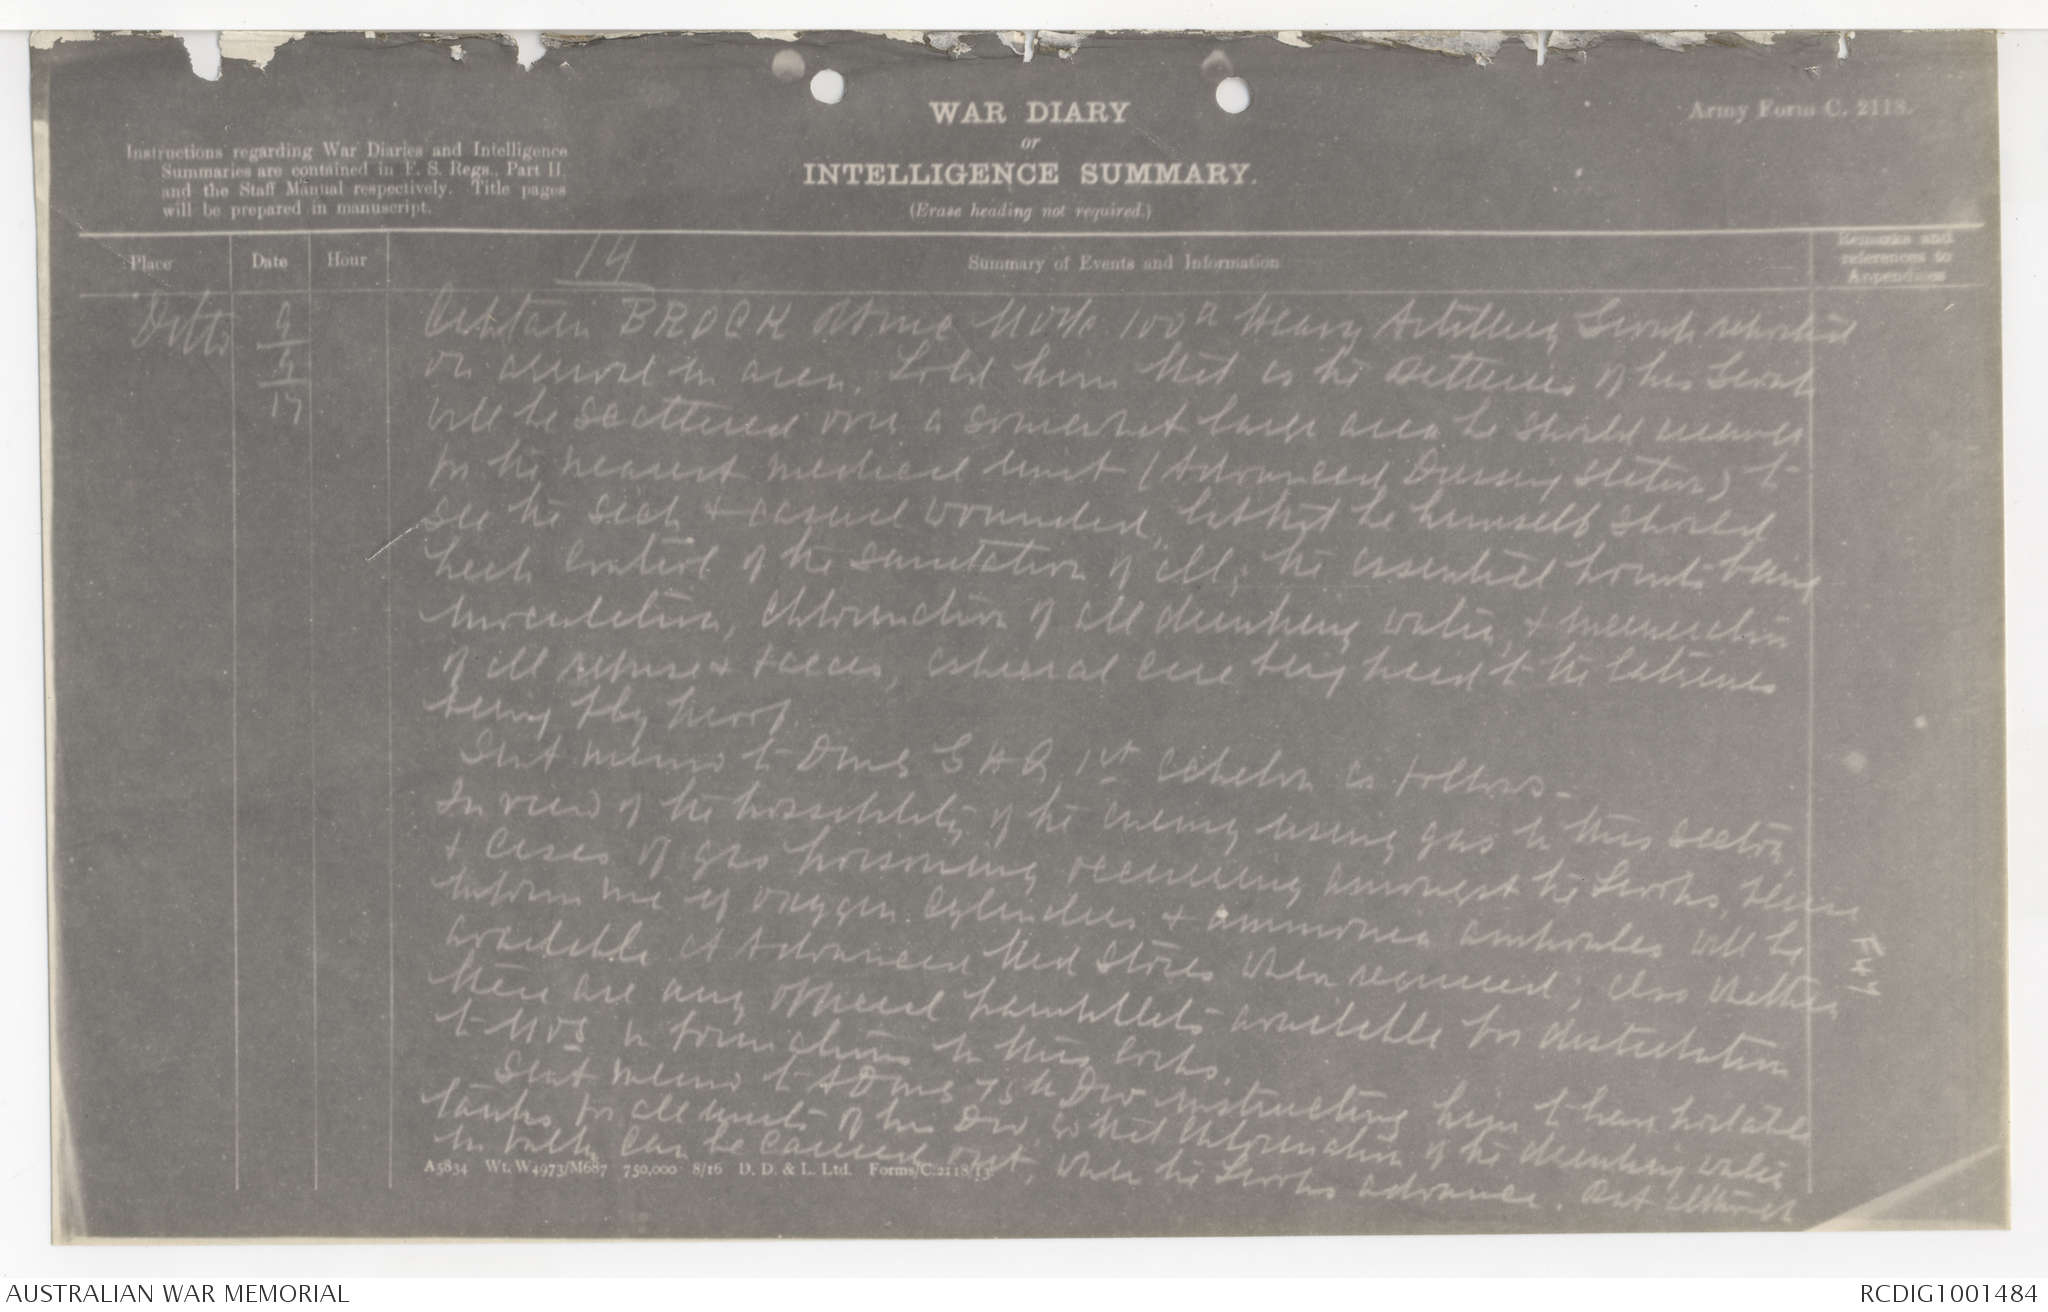 Army Form C. 2118.
WAR DIARY
or
INTELLIGENCE SUMMARY.
(Erase heading not required.)
Instructions regarding War Diaries and Intelligence
Summaries are contained in F. S. Regs., Part II.
and the Staff Manual respectively. Title pages
will be prepared in manuscript.
Place
Date
Hour
Summary of Events and Information
Remarks and
references to
Appendices
19
Ditto
9
17
Captain BROCK RAMC M.O. i/c 100th Heavy Artillery Group reported
on arrival in area. Told him that as the Batteries of his Group
will be scattered over a somewhat large area he should arrange
for the nearest medical unit (Advanced Dressing Station) to
see the sick & casual wounded, but that he himself should
keep control of the sanitation of all, the essential points being
inoculation, chlorination of all drinking water, & incineration
of all refuse & faeces, especial care being paid to the latrines
being fly proof.
Sent memo to DMS GHQ 1st Echelon as follows -
In view of the possibility of the enemy using gas in this sector,
& cases of gas poisoning occurring amongst the troops, please
inform me if oxygen cylinders & ammonia ampoules will be
available at Advanced Med Stores when required; also whether
there are any official pamphlets available for distribution
to MOs in formations in this Corps.
Sent memo to ADMS 75th Div instructing him to have portable
tanks for all units of his Div so that chlorination of the drinking water
in bulk can be carried out, when the troops advance. And although
A5834 Wt. W4973/M687 750,000 8/16 D. D. & L. Ltd. Forms/C.2118/13
AUSTRALIAN WAR MEMORIAL
RCDIG1001484